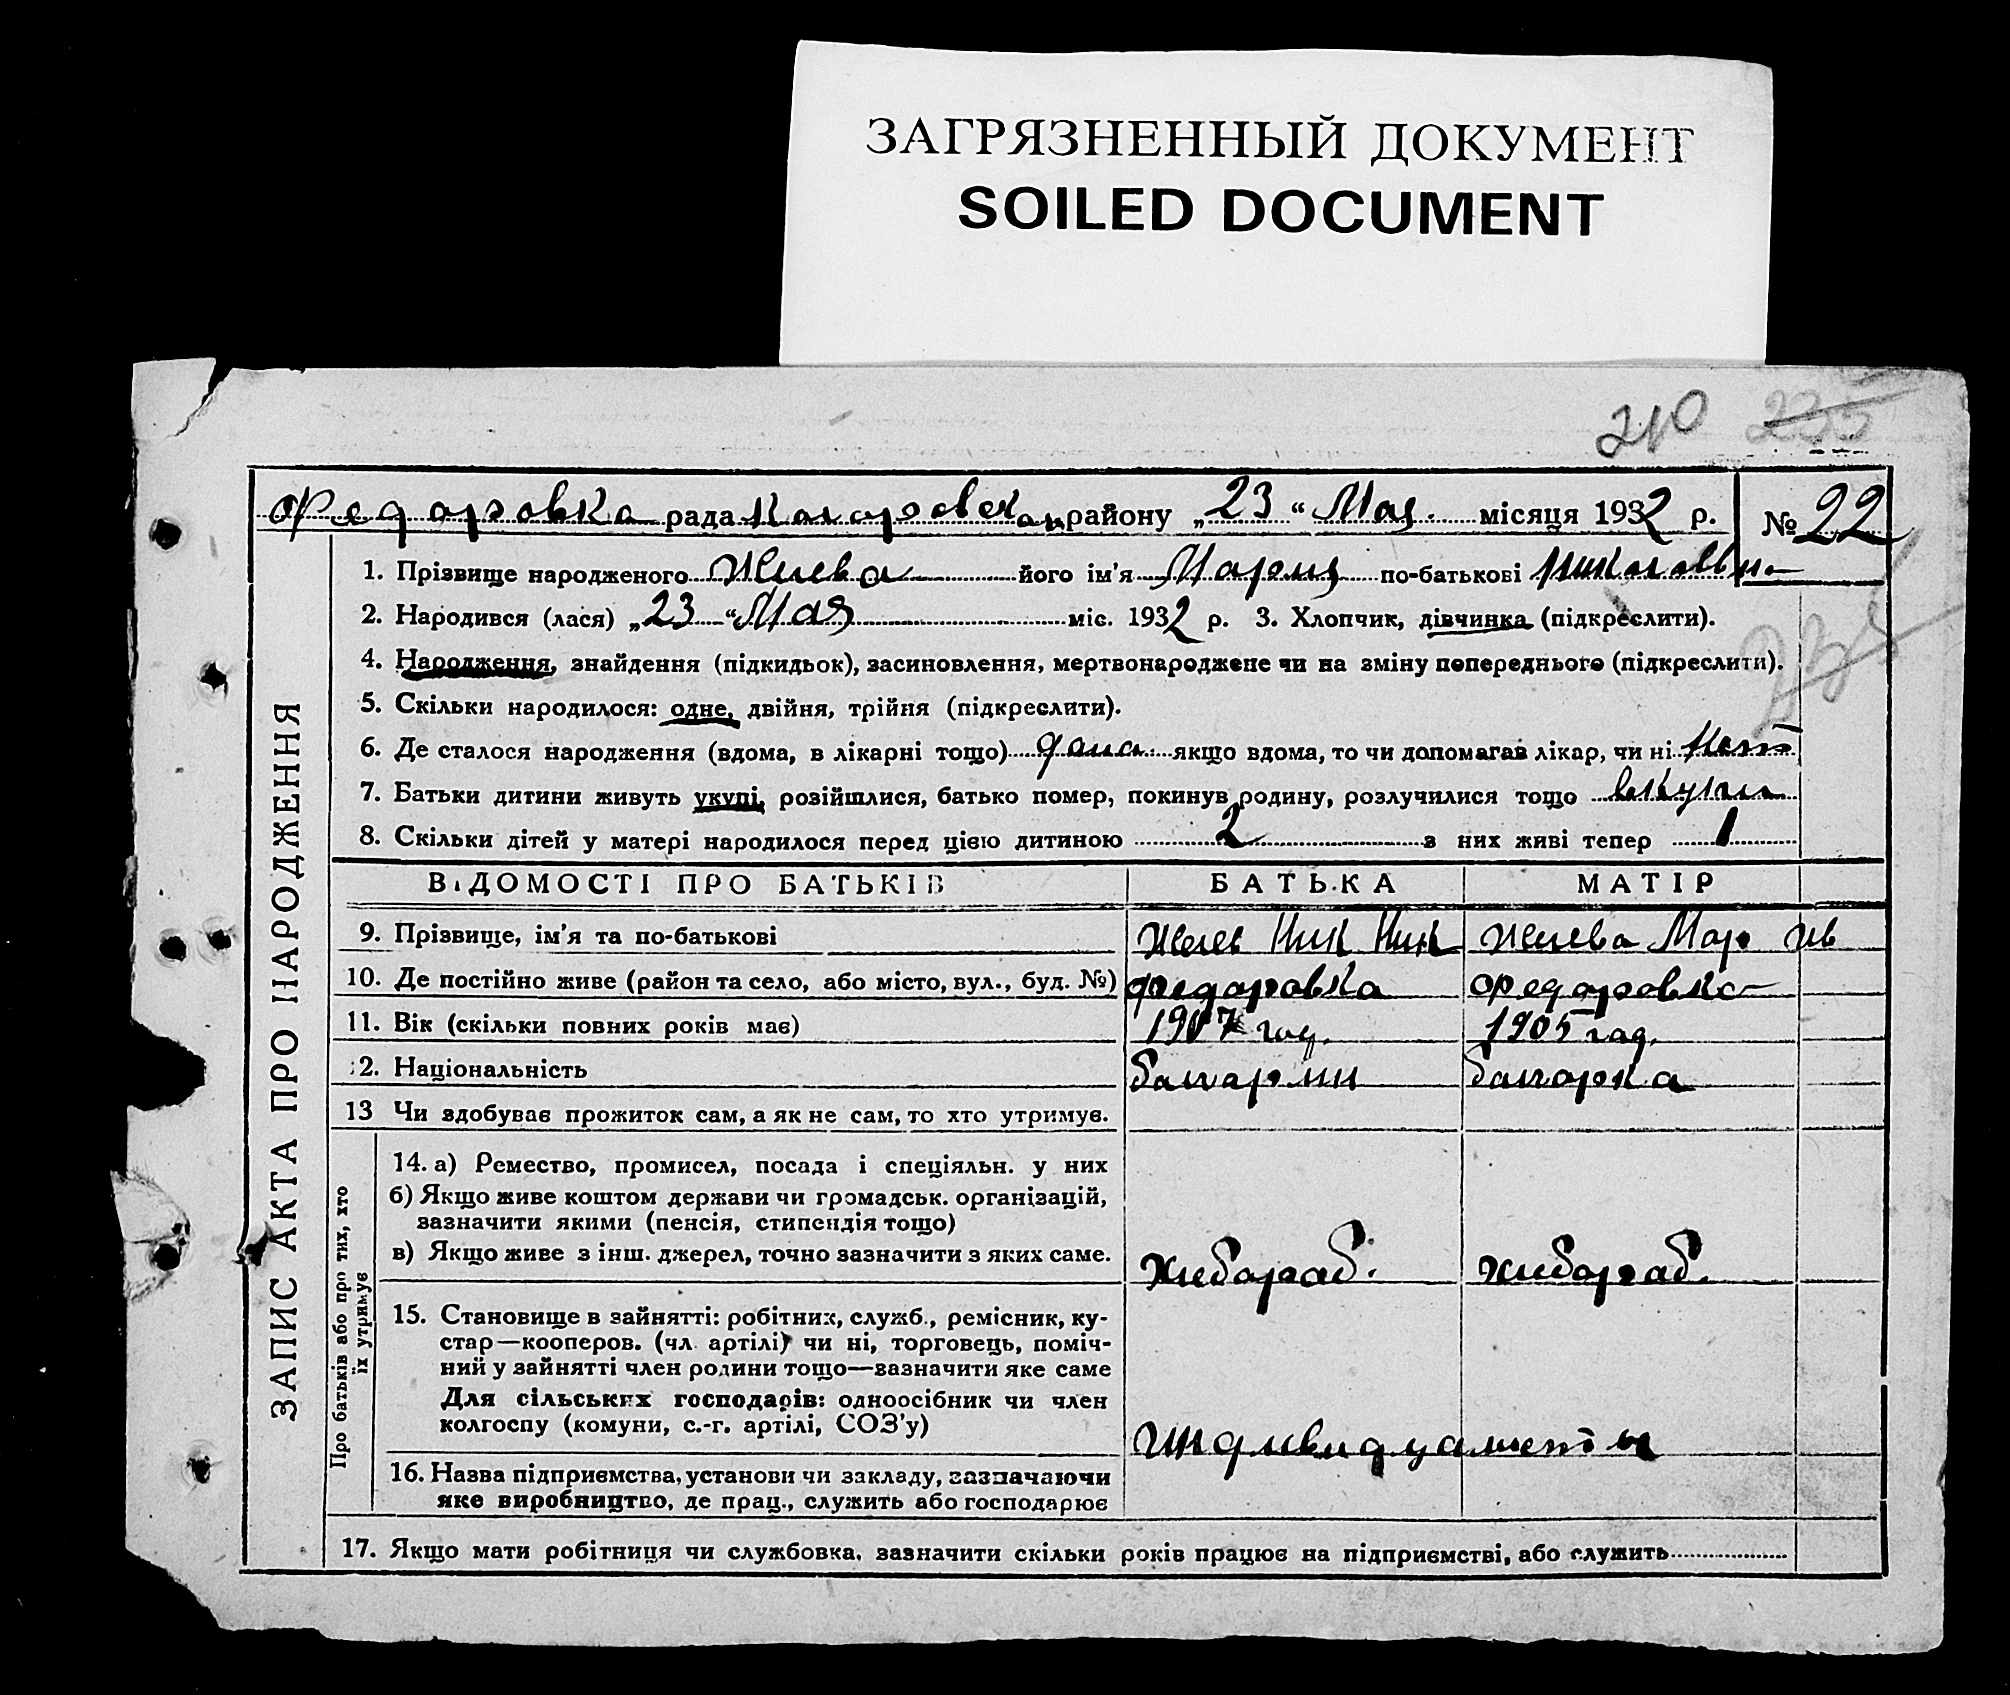 ЗАГРЯЗНЕННЫЙ ДОКУМЕНТ
SOILED DOCUMENT
210 235
Федоровка рада района району „23“ Мая місяця 1932 р. № 22
ЗАПИС АКТА ПРО НАРОДЖЕННЯ
1. Прізвище народженого Желева його ім'я Мария по-батькові
2. Народився (лася) „23“ Мая міс. 1932 р. 3. Хлопчик, дівчинка (підкреслити).
4. Народження, знайдення (підкидьок), засиновлення, мертвонароджене чи на зміну попереднього (підкреслити).
5. Скільки народилося: одне, двійня, трійня (підкреслити).
6. Де сталося народження (вдома, в лікарні тощо) дома якщо вдома, то чи допомагав лікар, чи ні нет
7. Батьки дитини живуть укупі, розійшлися, батько помер, покинув родину, розлучилися тощо вкупи
8. Скільки дітей у матері народилося перед цією дитиною 2 з них живі тепер 1
ВІДОМОСТІ ПРО БАТЬКІВ БАТЬКА МАТІР
9. Прізвище, ім'я та по-батькові Желев Ник Ник Желева Мар Ив
10. Де постійно живе (район та село, або місто, вул., буд. №) Федоровка Федоровка
11. Вік (скільки повних років має) 1907 год. 1905 год.
12. Національність болгарин болгарка
13 Чи здобуває прожиток сам, а як не сам, то хто утримує.
Про батьків або про тих, хто їх утримує
14. а) Ремество, промисел, посада і спеціяльн. у них
б) Якщо живе коштом держави чи громадськ. організацій,
зазначити якими (пенсія, стипендія тощо)
в) Якщо живе з інш. джерел, точно зазначити з яких саме. хлебораб. хлебораб.
15. Становище в зайнятті: робітник, служб., ремісник, ку-
стар—кооперов. (чл. артілі) чи ні, торговець, поміч-
ний у зайнятті член родини тощо—зазначити яке саме
Для сільських господарів: одноосібник чи член
колгоспу (комуни, с.-г. артілі, СОЗ'у)
16. Назва підприємства, установи чи закладу, зазначаючи
яке виробництво, де прац., служить або господарює
17. Якщо мати робітниця чи службовка, зазначити скільки років працює на підприємстві, або служить